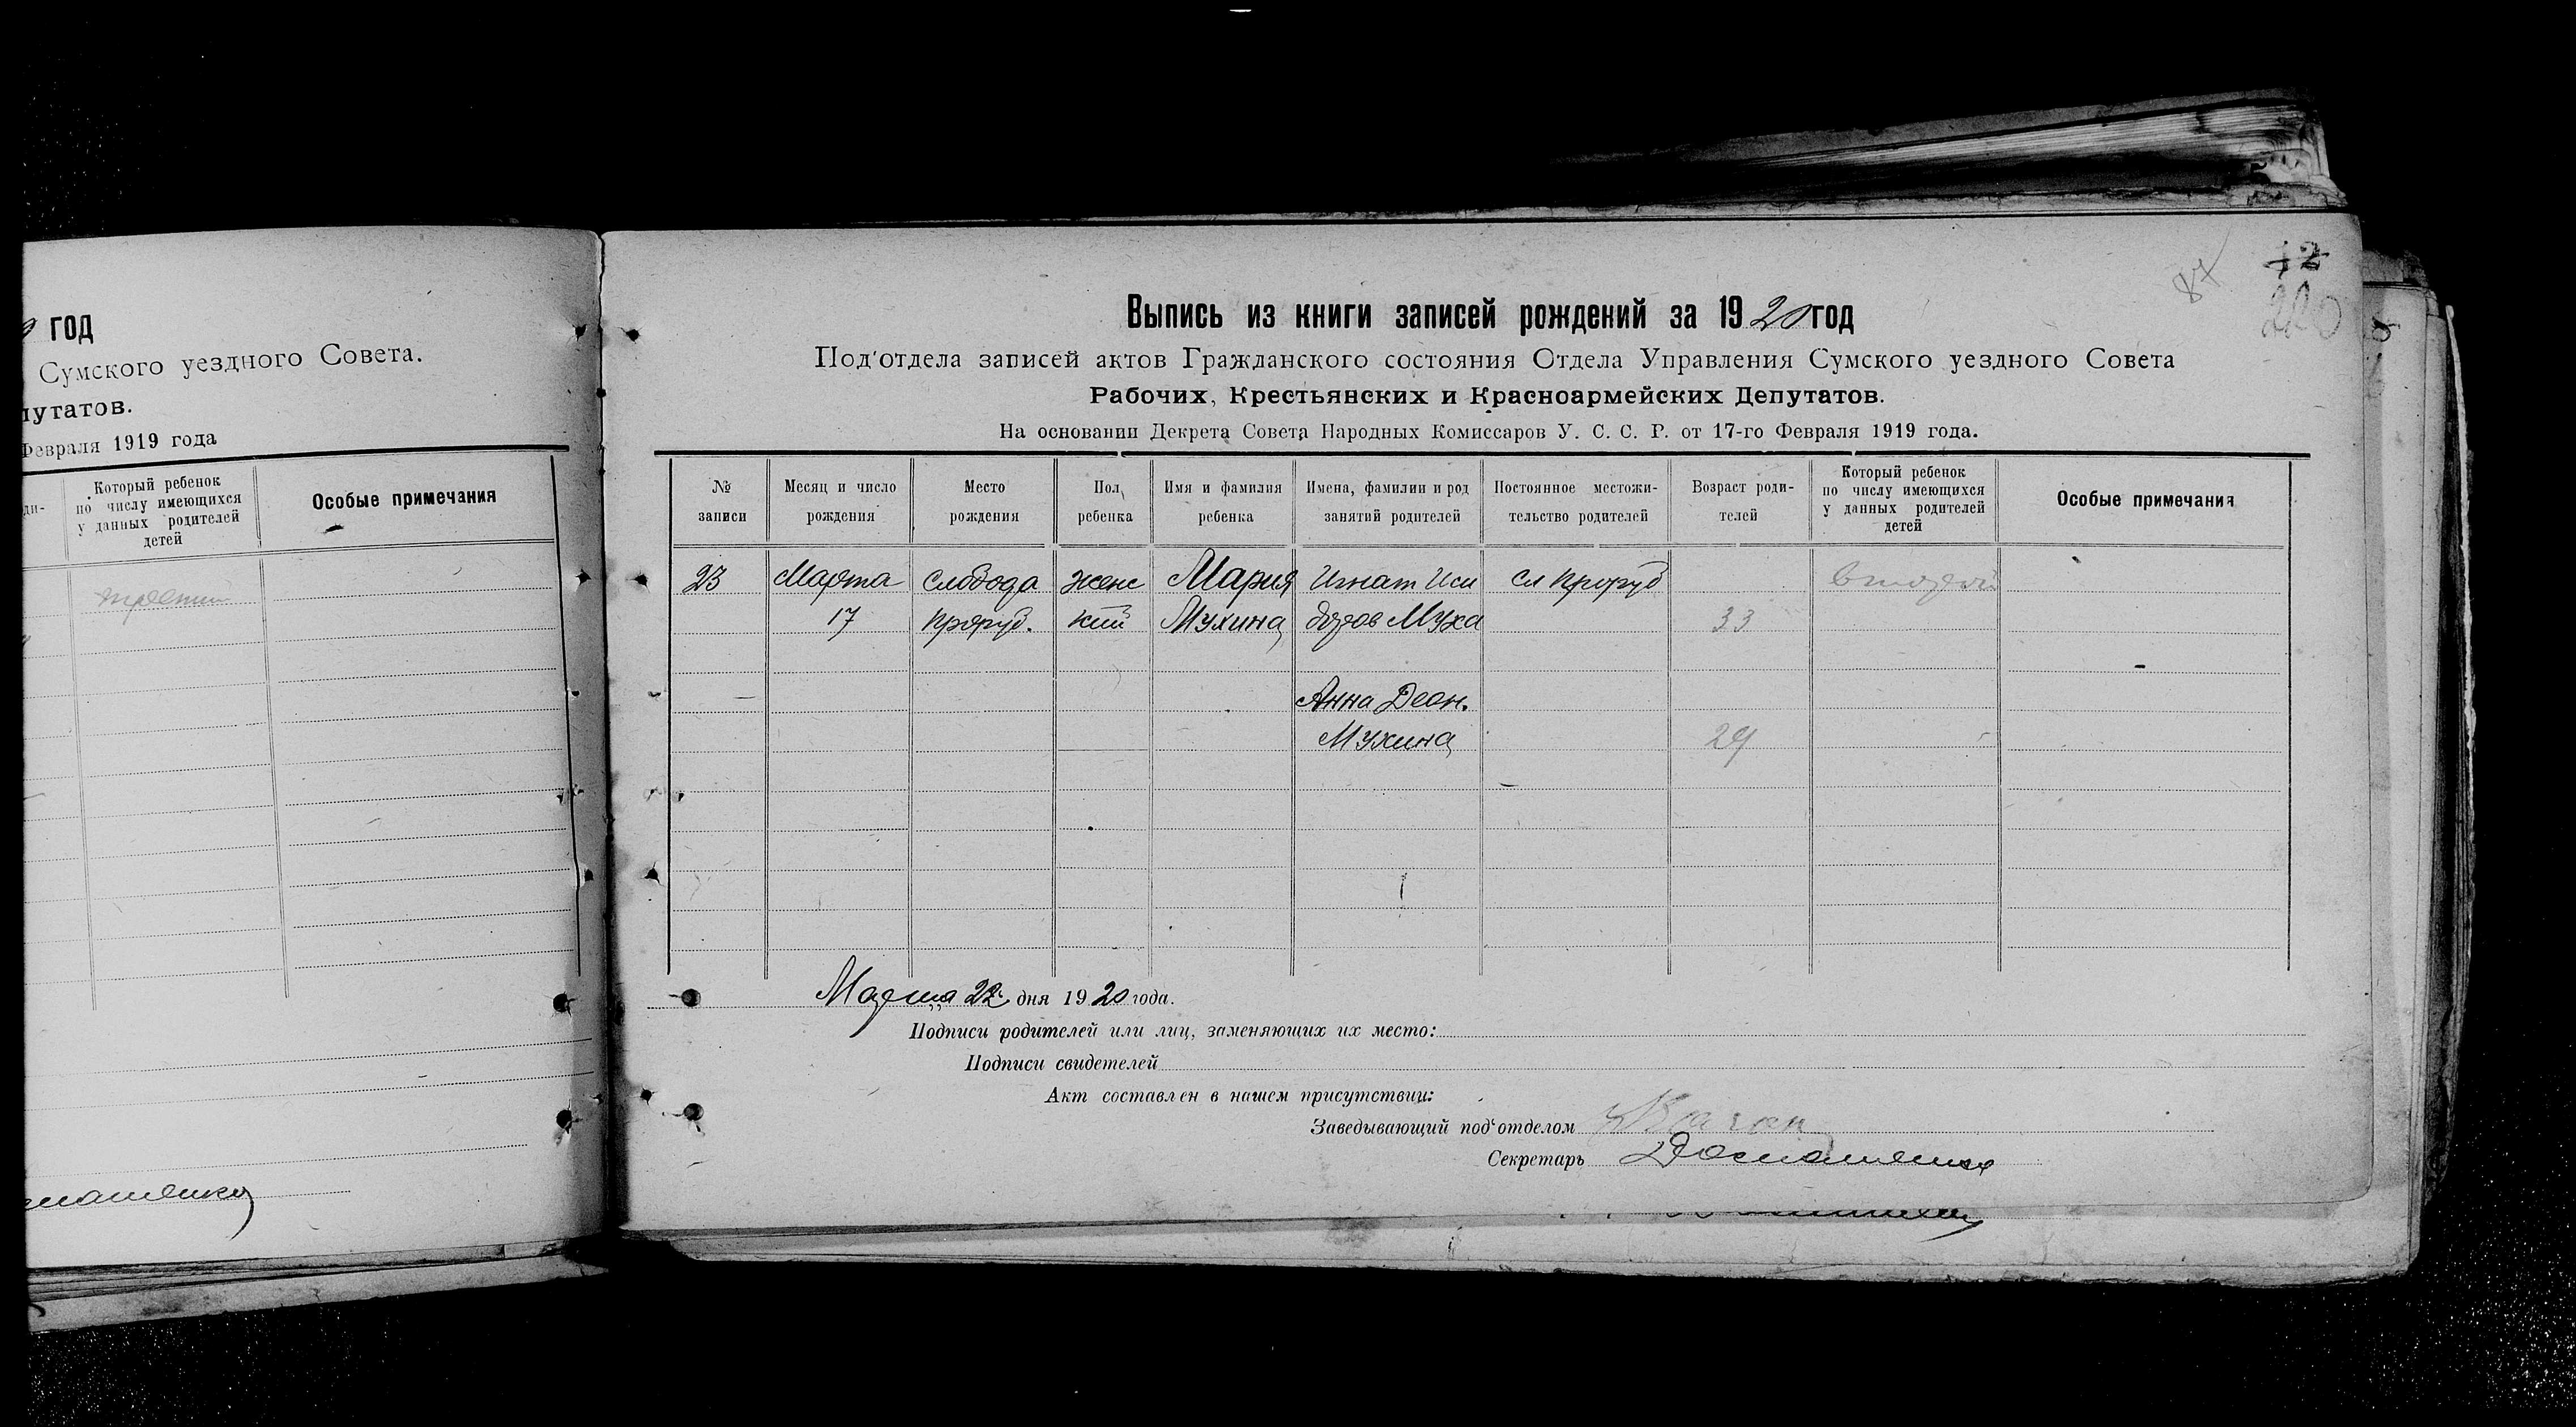 год
Сумского уездного Совета.
путатов.
Февраля 1919 года
ди-
Который ребенок
по числу имеющихся
у данных родителей
детей
Особые примечания
третий
87
12
220
Выпись из книги записей рождений за 1920 год
Под'отдела записей актов Гражданского состояния Отдела Управления Сумского уездного Совета
Рабочих, Крестьянских и Красноармейских Депутатов.
На основании Декрета Совета Народных Комиссаров У. С. С. Р. от 17-го Февраля 1919 года.
№ записи
Месяц и число рождения
Место рождения
Пол ребенка
Имя и фамилия ребенка
Имена, фамилии и род занятий родителей
Постоянное местожи-тельство родителей
Возраст роди-телей
Который ребенок по числу имеющихся у данных родителей детей
Особые примечания
23 Марта слобода женс Мария Игнат Иси сл Проруб второй
17 Проруб. кий Мухина доров Муха 33
Анна Деон.
Мухина 29
Марта 22 дня 1920 года.
Подписи родителей или лиц, заменяющих их место:
Подписи свидетелей
Акт составлен в нашем присутствии:
Заведывающий под'отделом
Секретарь